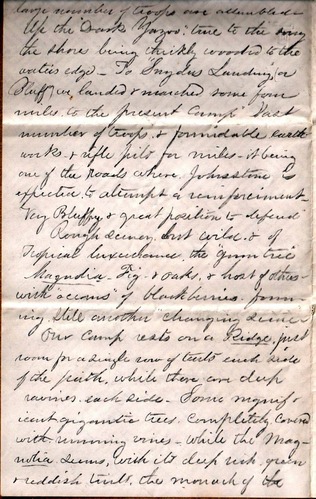 large number of troops are assembled
Up the "Dark Yazoo", true to the song
the shore being thickly wooded to the
waters edge - To "Snyders Landing" or
Bluff, we landed & marched some four
miles, to the present Camp. Vast
number of troops, & formidable earth
works, & rifle pits for miles - it being
one of the Roads where Johnstone is
expected to attempt a reinforcement -
Very Bluffy, & great position to defend
Rough scenery, but wild, & of
Tropical luxuriance, the "Gum tree"
Magnolia, Fig, & oaks, & host of others
with "oceans" of blackberries, form-
ing still another changing scene
Our Camp rests on a Ridge, just
room for a single row of tents each side
of the path, while there are deep
ravines each side - Some magnif-
icent gigantic trees, completely covered
with running vines - while the Mag-
nolia seems, with its deep rich green
& reddish tints, the monarch of the